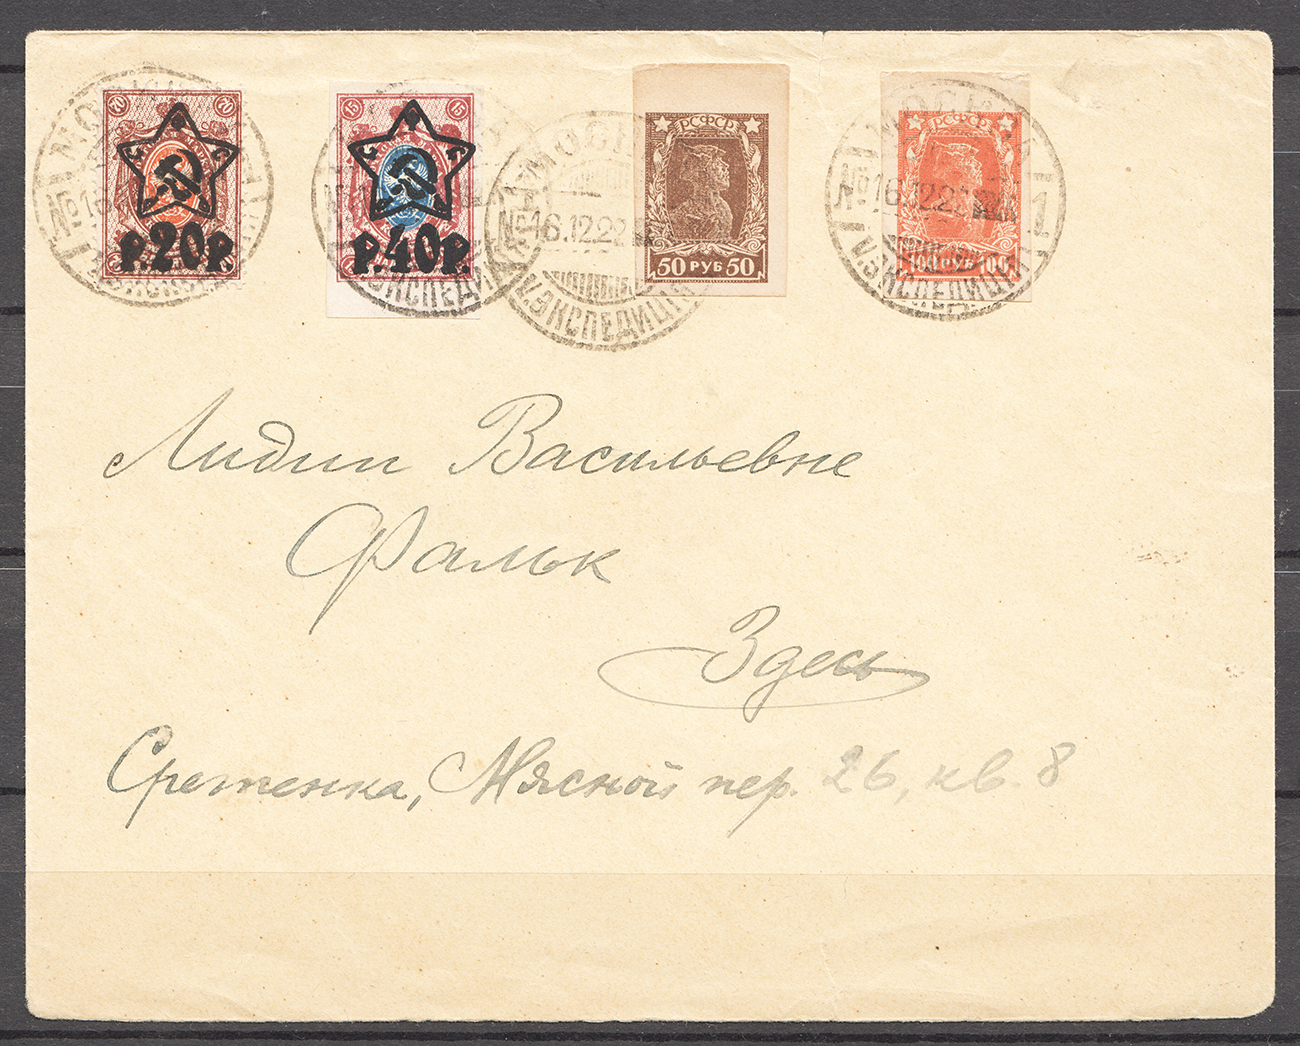 70 70
Р.20Р.
15 15
Р.40Р.
РСФСР
50 РУБ 50
100 РУБ 100
МОСКВА
№ 16.12.22
1
V. ЭКСПЕДИЦІЯ
Лидии Васильевне
Фальк
Здесь
Сретенка, Мясной пер. 26, кв. 8